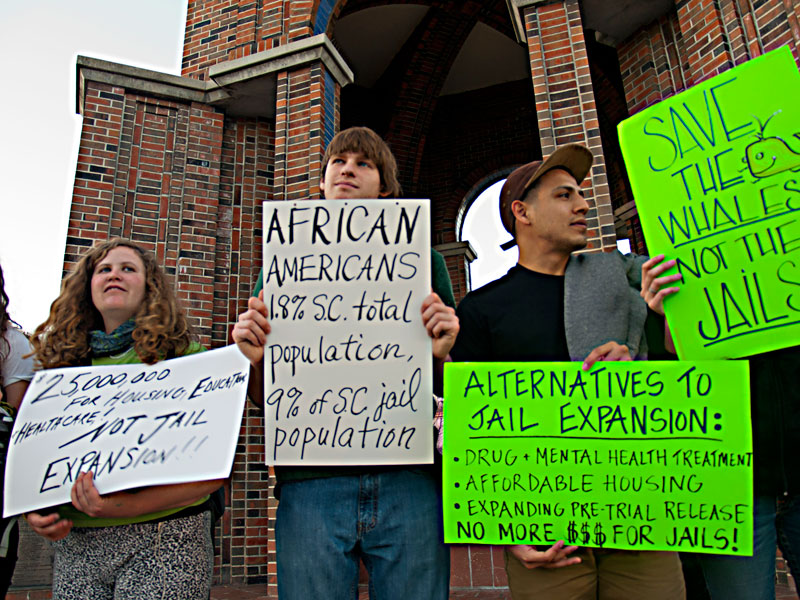 $25,000,000
FOR HOUSING, EDUCATION
HEALTHCARE!
NOT JAIL
EXPANSION!!!
AFRICAN
AMERICANS
1.8% S.C. total
population,
9% of S.C. jail
population
ALTERNATIVES TO
JAIL EXPANSION:
• DRUG + MENTAL HEALTH TREATMENT
• AFFORDABLE HOUSING
• EXPANDING PRE-TRIAL RELEASE
NO MORE $$$ FOR JAILS!
SAVE
THE
WHALES
NOT THE
JAILS